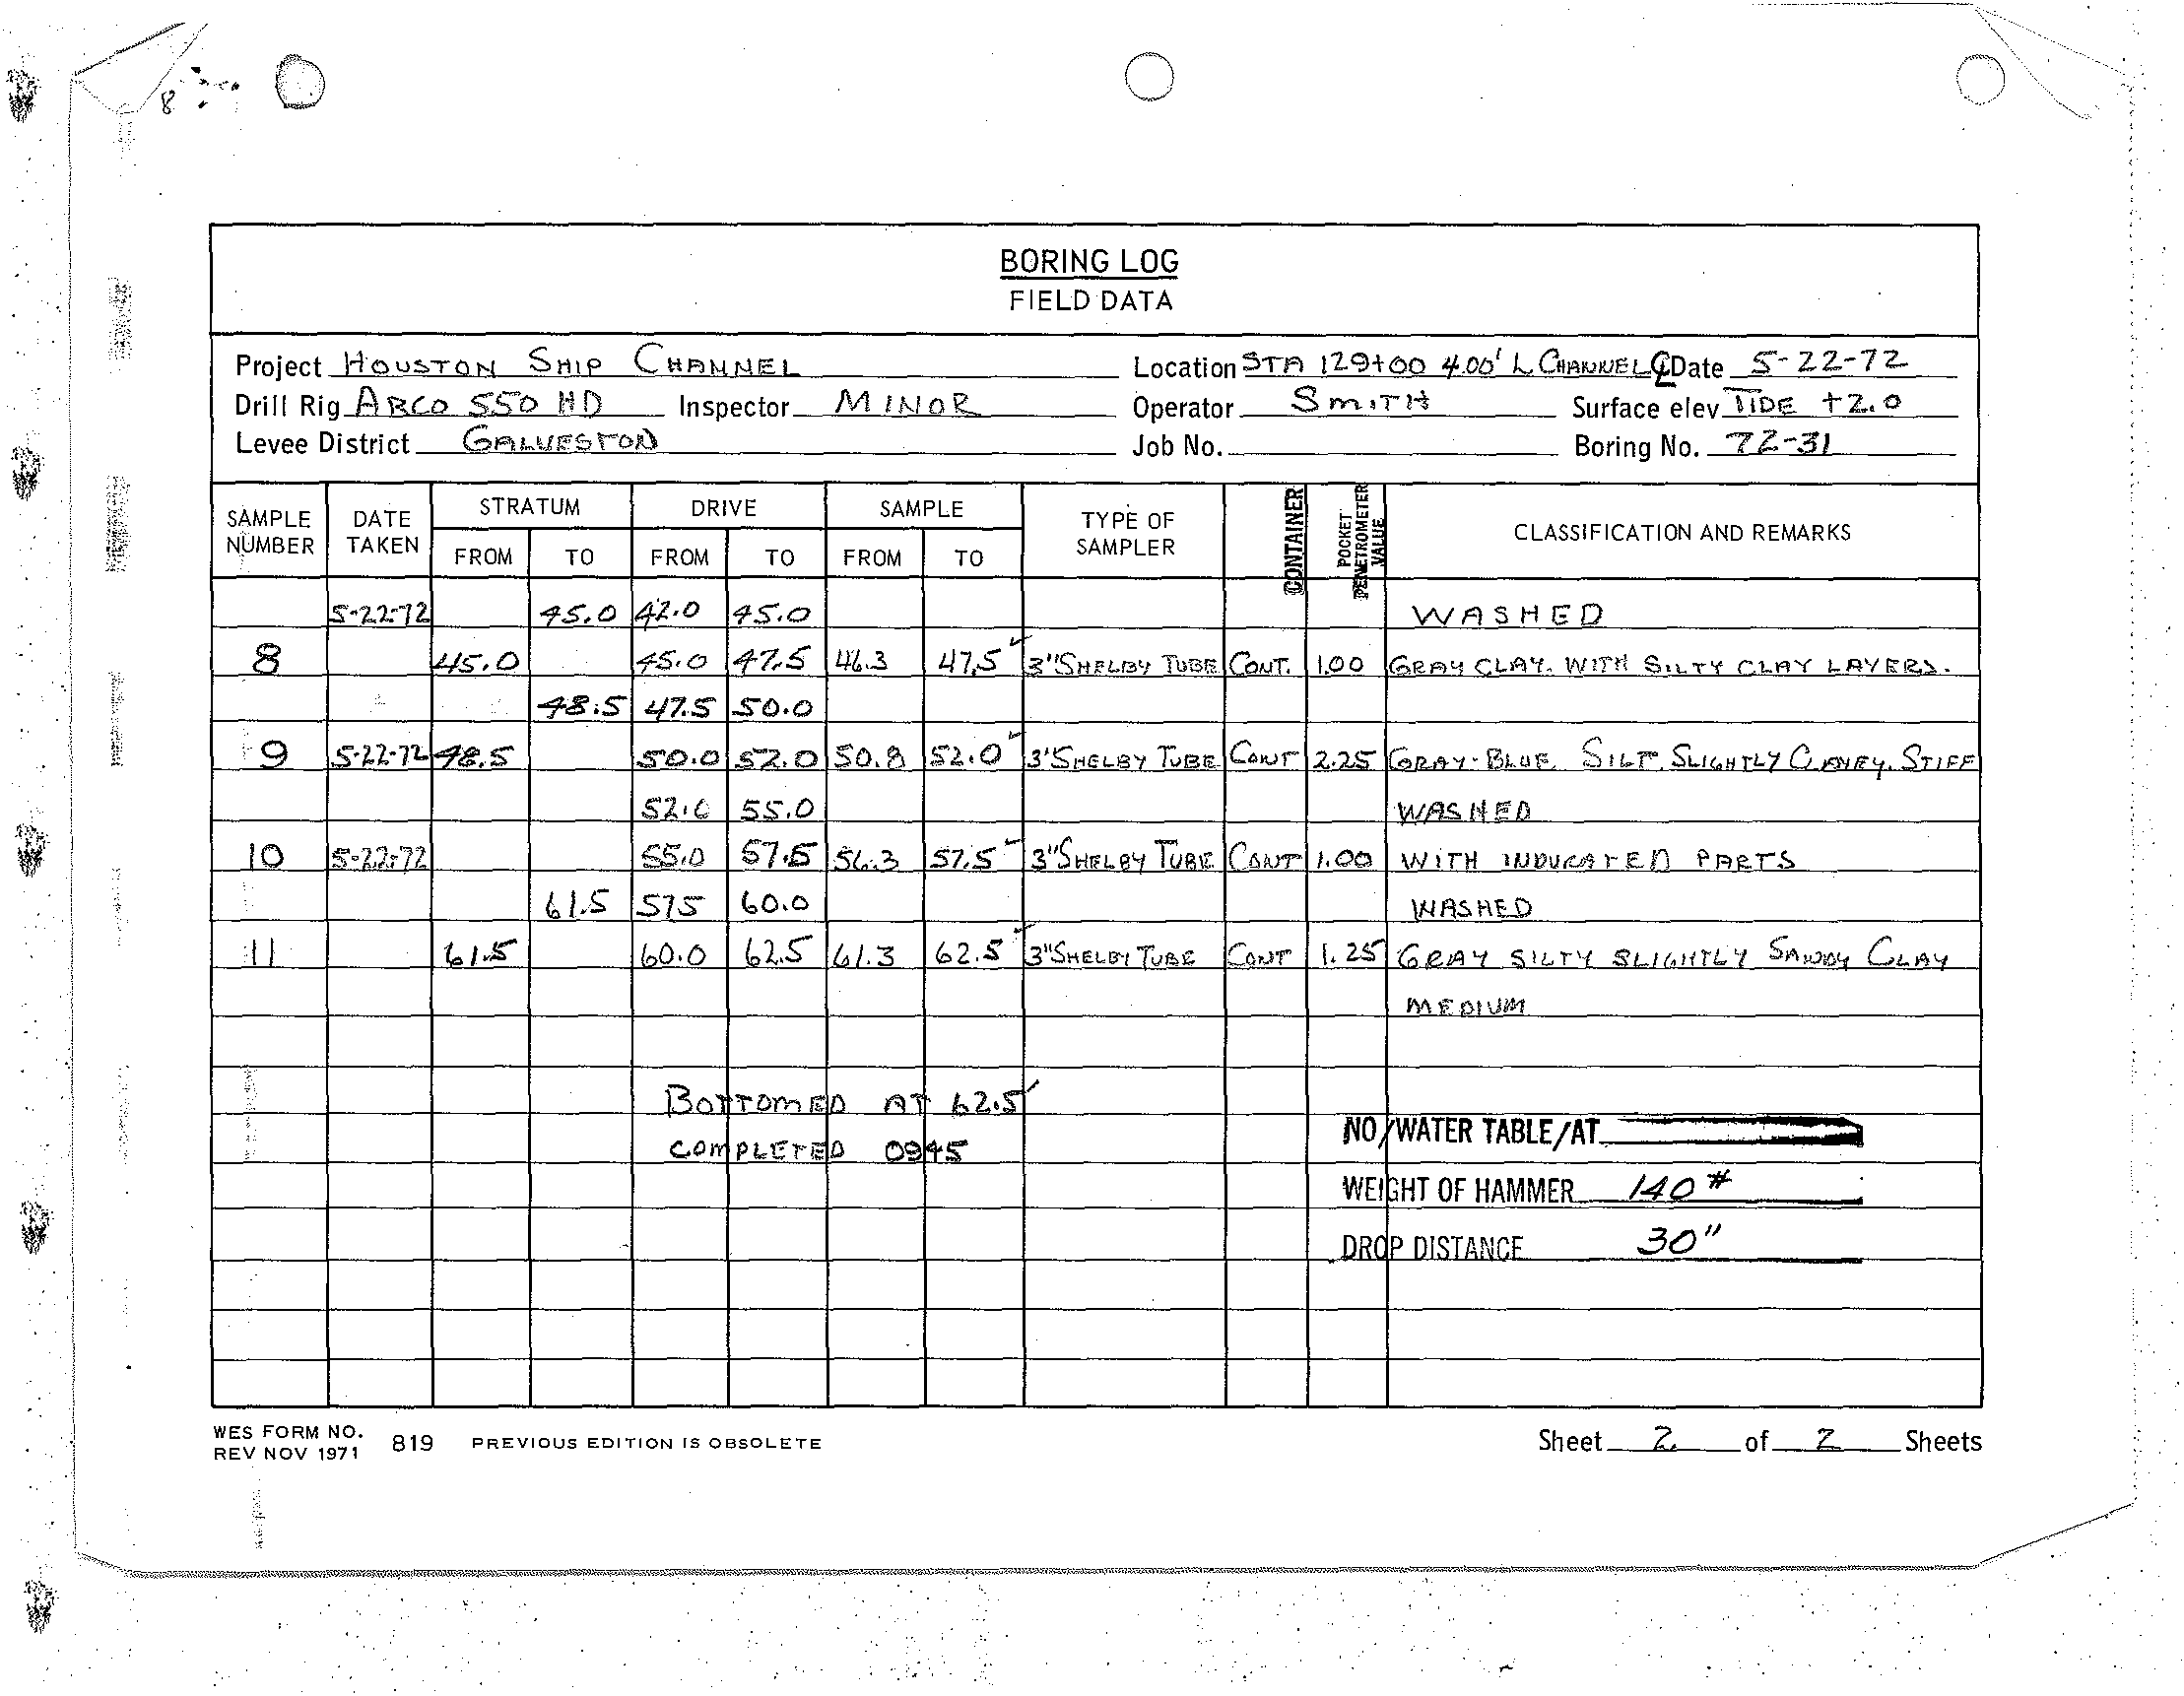 8
BORING LOG
FIELD DATA
Project HOUSTON SHIP CHANNEL Location STA 129+00 400' L CHANNEL ℄ Date 5-22-72
Drill Rig ARCO 550 HD Inspector MINOR Operator SMITH Surface elev TIDE +2.0
Levee District GALVESTON Job No. Boring No. 72-31
SAMPLE NUMBER DATE TAKEN STRATUM FROM TO DRIVE FROM TO SAMPLE FROM TO TYPE OF SAMPLER CONTAINER POCKET PENETROMETER VALUE CLASSIFICATION AND REMARKS
5-22-72 45.0 42.0 45.0 WASHED
8 45.0 45.0 47.5 46.3 47.5 3" SHELBY TUBE CONT. 1.00 GRAY CLAY. WITH SILTY CLAY LAYERS.
48.5 47.5 50.0
9 5-22-72 48.5 50.0 52.0 50.8 52.0 3" SHELBY TUBE CONT 2.25 GRAY-BLUE SILT, SLIGHTLY CLAYEY. STIFF
52.0 55.0 WASHED
10 5-22-72 55.0 57.5 56.3 57.5 3" SHELBY TUBE CONT 1.00 WITH INDURATED PARTS
61.5 575 60.0 WASHED
11 61.5 60.0 62.5 61.3 62.5 3" SHELBY TUBE CONT 1.25 GRAY SILTY SLIGHTLY SANDY CLAY
MEDIUM
BOTTOMED AT 62.5'
NO/WATER TABLE/AT
COMPLETED 0945
WEIGHT OF HAMMER 140#
DROP DISTANCE 30"
WES FORM NO. 819 PREVIOUS EDITION IS OBSOLETE
REV NOV 1971
Sheet 2 of 2 Sheets